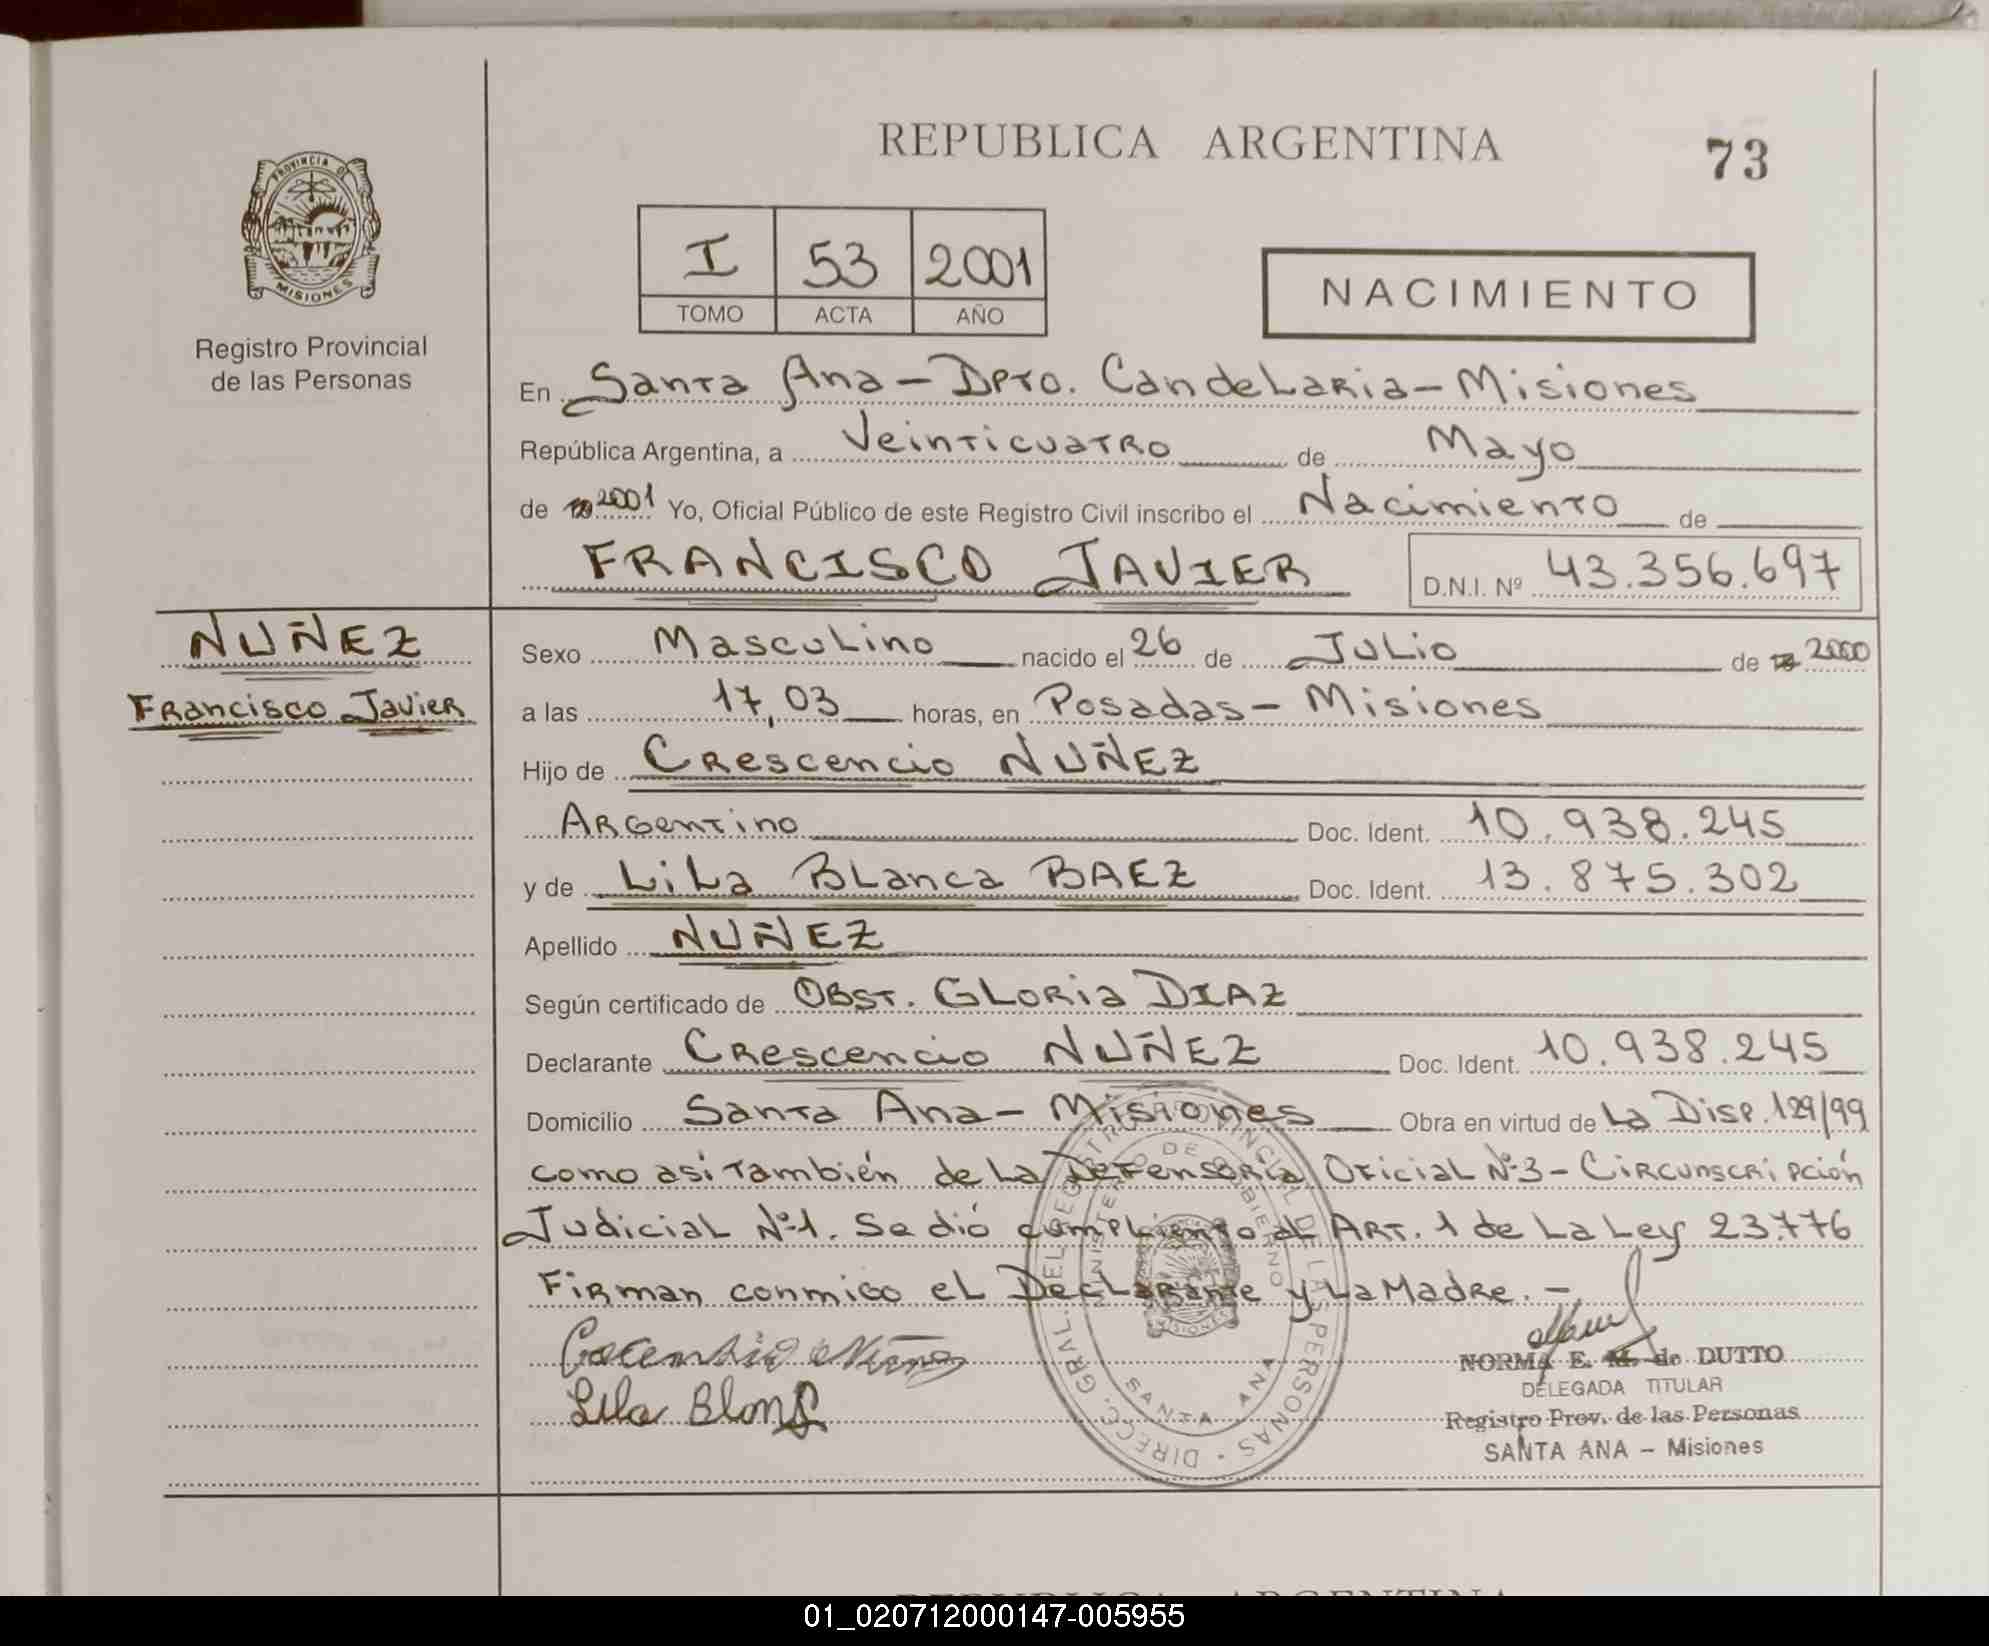 REPUBLICA ARGENTINA
73
PROVINCIA DE
MISIONES
Registro Provincial
de las Personas
I 53 2001
TOMO ACTA AÑO
NACIMIENTO
En Santa Ana - Dpto. Candelaria - Misiones
República Argentina, a Veinticuatro de Mayo
de 2001 Yo, Oficial Público de este Registro Civil inscribo el Nacimiento de
FRANCISCO JAVIER D.N.I. Nº 43.356.697
NUÑEZ
Francisco Javier
Sexo Masculino nacido el 26 de Julio de 2000
a las 17,03 horas, en Posadas - Misiones
Hijo de Crescencio NUÑEZ
Argentino Doc. Ident. 10.938.245
y de Lila Blanca BAEZ Doc. Ident. 13.875.302
Apellido NUÑEZ
Según certificado de Obst. Gloria DIAZ
Declarante Crescencio NUÑEZ Doc. Ident. 10.938.245
Domicilio Santa Ana - Misiones Obra en virtud de La Disp. 129/99
como asi también de la Defensoria Oficial Nº 3 - Circunscripción
Judicial Nº 1. Se dió cumpliento al Art. 1 de La Ley 23.776
Firman conmigo el Declarante y La Madre. -
Lila Blanc
DIRECC. GRAL. DEL REGISTRO PROVINCIAL DE LAS PERSONAS
MINISTERIO DE GOBIERNO
MISIONES
SANTA ANA
NORMA E. M. de DUTTO
DELEGADA TITULAR
Registro Prov. de las Personas
SANTA ANA - Misiones
REPUBLICA ARGENTINA
01_020712000147-005955